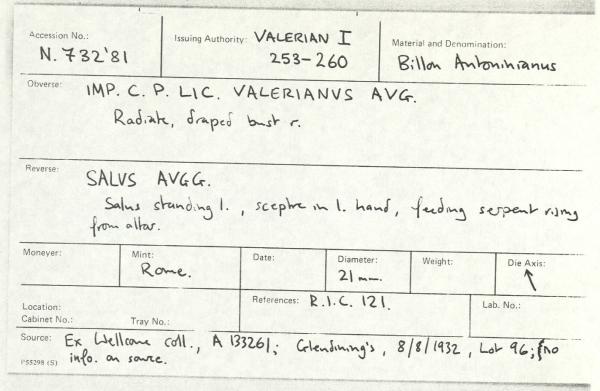 Accession No.: Issuing Authority: VALERIAN I Material and Denomination:
N. 732'81 253-260 Billon Antoninianus
Obverse: IMP. C. P. LIC. VALERIANVS AVG.
Radiate, draped bust r.
Reverse:
SALVS AVGG.
Salus standing l., sceptre in l. hand, feeding serpent rising
from altar.
Moneyer: Mint: Date: Diameter: Weight: Die Axis:
Rome. 21 mm. ↖
Location: References: R.I.C. 121. Lab. No.:
Cabinet No.: Tray No.:
Source: Ex Wellcome coll., A 133261; Glendining's, 8/8/1932, Lot 96; no
info. on source.
P55298 (S)